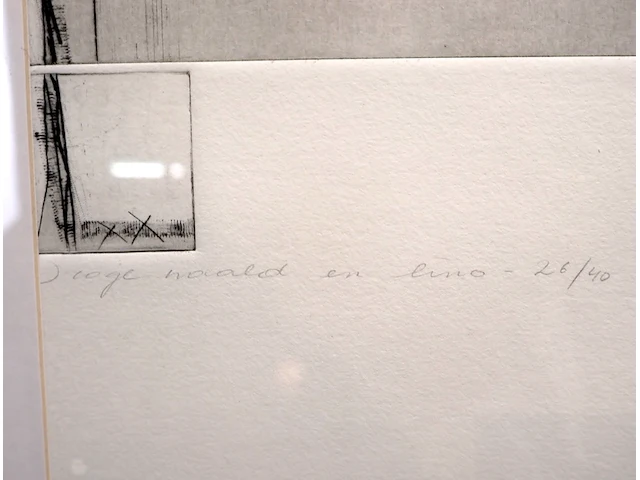 Droge naald en lino - 26/40